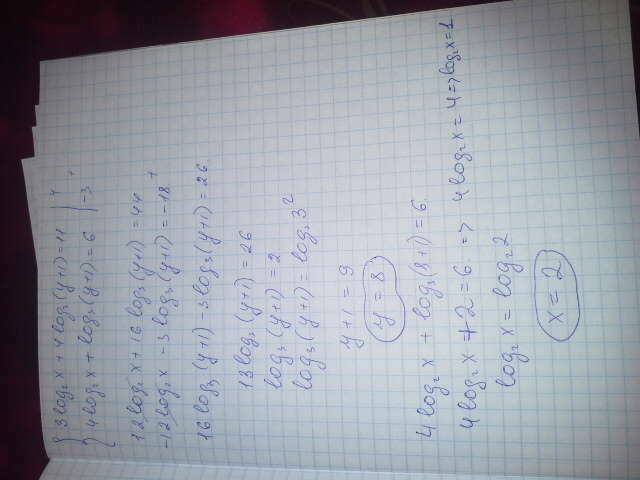 { 3log₂x + 4log₃(y+1) = 11 | 4
{ 4log₂x + log₃(y+1) = 6 | -3 +
12log₂x + 16log₃(y+1) = 44
-12log₂x - 3log₃(y+1) = -18 +
16log₃(y+1) - 3log₃(y+1) = 26
13log₃(y+1) = 26
log₃(y+1) = 2
log₃(y+1) = log₃3²
y+1 = 9
y = 8
4log₂x + log₃(8+1) = 6
4log₂x + 2 = 6 => 4log₂x = 4 => log₂x = 1
log₂x = log₂2
x = 2